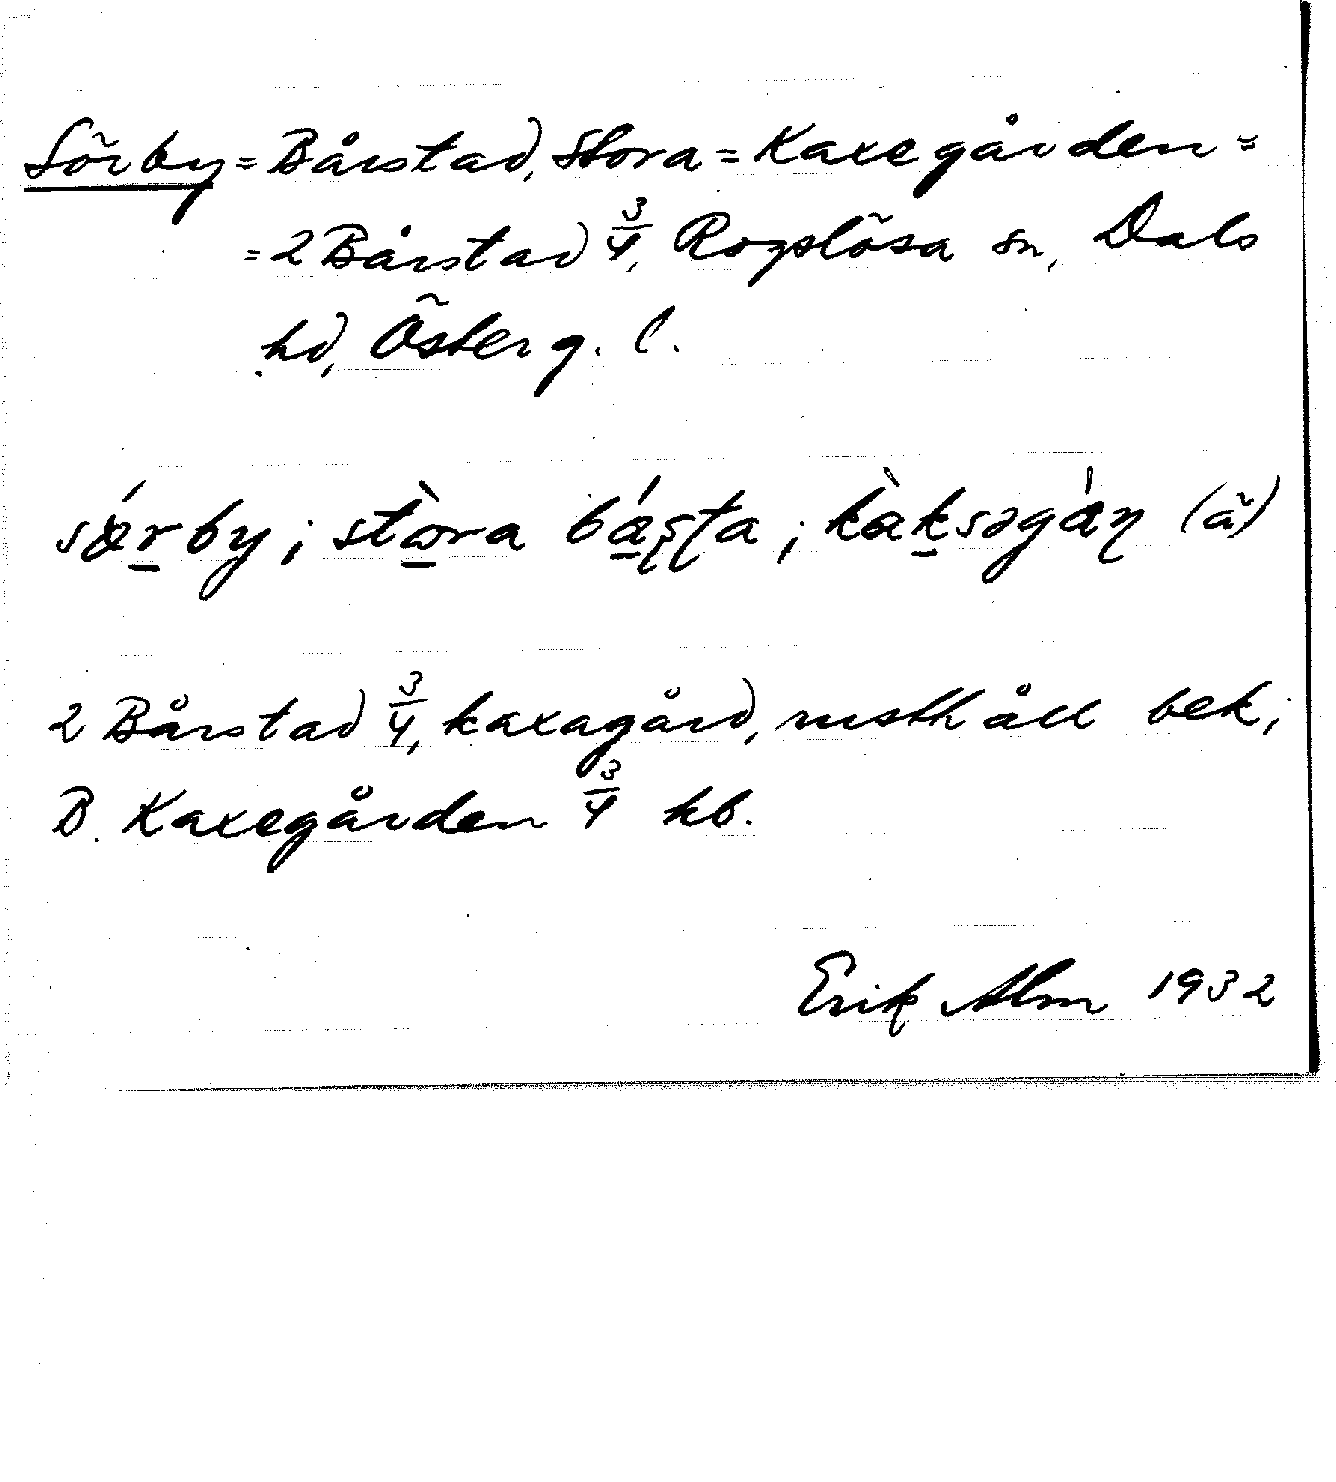 Sörby = Bårstad, Stora = Kaxegården =
= 2 Bårstad 3/4, Rogslösa sn, Dals
hd, Österg. l.
sǿr̠by; stò̠ra bá̠ʂʈa; kàk̠səgáɳ (å)
2 Bårstad 3/4, kaxagård, rusthåll bek;
B. Kaxegården 3/4 hb.
Erik Alm 1932